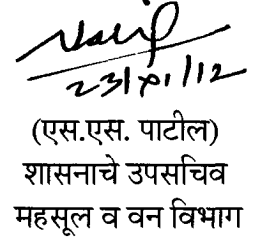 23/11/12
(एस.एस. पाटील)
शासनाचे उपसचिव
महसूल व वन विभाग